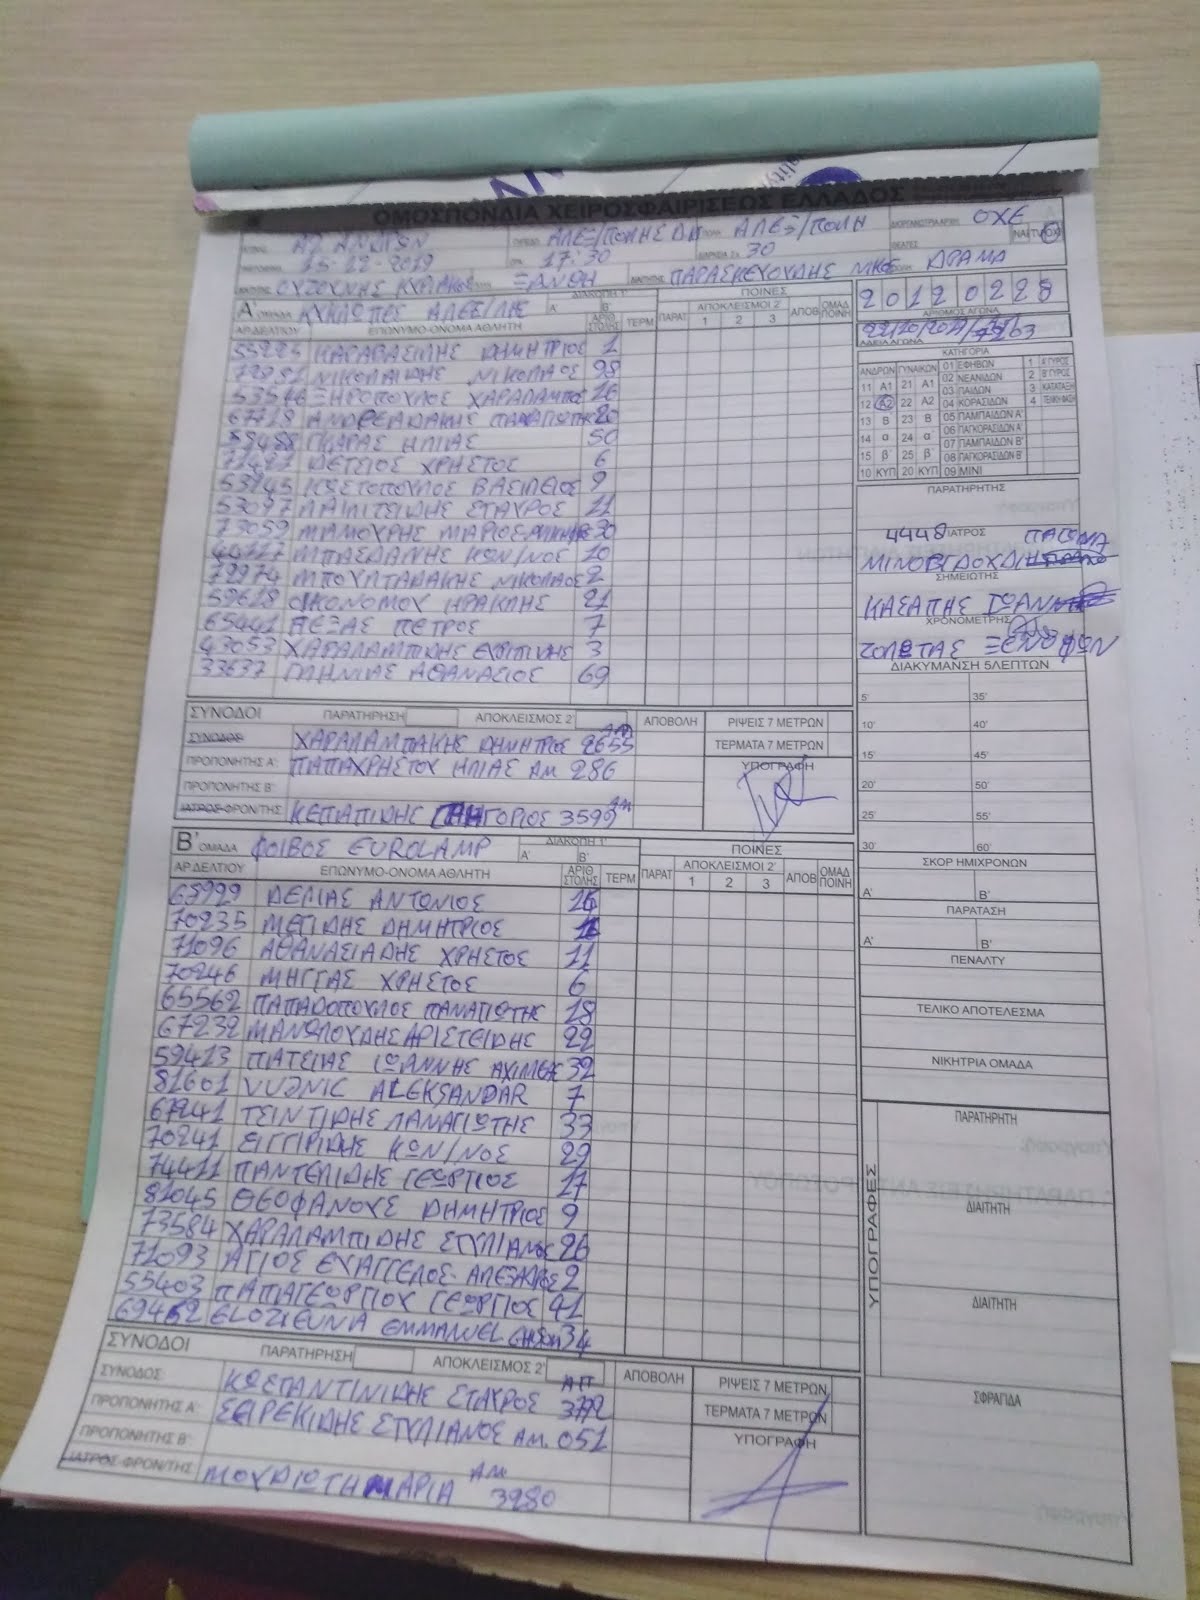 ΟΜΟΣΠΟΝΔΙΑ ΧΕΙΡΟΣΦΑΙΡΙΣΕΩΣ ΕΛΛΑΔΟΣ
Α2 ΑΝΔΡΩΝ ΑΛΕΞ/ΠΟΛΗΣ ΑΛΕΞ/ΠΟΛΗ ΟΧΕ
15-12-2019 17:30 30 ΝΑΙ ΟΧΙ
ΚΥΡΙΑΚΟΣ ΞΑΝΘΗ ΠΑΡΑΣΚΕΥΟΥΔΗΣ ΝΙΚΟΣ ΔΡΑΜΑ
Α' ΟΜΑΔΑ ΚΥΚΛΩΠΕΣ ΑΛΕΞ/ΛΗΣ Α' Β' ΔΙΑΚΟΠΗ 1' ΠΟΙΝΕΣ
ΑΡ.ΔΕΛΤΙΟΥ ΕΠΩΝΥΜΟ-ΟΝΟΜΑ ΑΘΛΗΤΗ ΑΡΙΘ ΣΤΟΛΗΣ ΤΕΡΜ ΠΑΡΑΤ ΑΠΟΚΛΕΙΣΜΟΙ 2' 1 2 3 ΑΠΟΒ ΟΜΑΔ ΠΟΙΝΗ
ΚΑΡΑΒΑΣΙΛΗΣ ΔΗΜΗΤΡΙΟΣ 1
ΝΙΚΟΛΑΙΔΗΣ ΝΙΚΟΛΑΟΣ 98
ΞΗΡΟΠΟΥΛΟΣ ΧΑΡΑΛΑΜΠΟΣ 16
67718 ΑΝΔΡΕΑΔΑΚΗΣ ΠΑΝΑΓΙΩΤΗΣ 20
ΓΚΑΡΑΣ ΗΛΙΑΣ 50
ΔΕΤΣΙΟΣ ΧΡΗΣΤΟΣ 6
53745 ΚΩΣΤΟΠΟΥΛΟΣ ΒΑΣΙΛΕΙΟΣ 9
53097 ΛΑΙΛΙΤΣΙΔΗΣ ΣΤΑΥΡΟΣ 11
73059 ΜΑΜΟΥΡΗΣ ΜΑΡΙΟΣ 30
ΜΠΑΣΔΑΝΗΣ ΚΩΝ/ΝΟΣ 10
72974 ΜΠΟΥΛΤΑΔΑΚΗΣ ΝΙΚΟΛΑΟΣ 2
59618 ΟΙΚΟΝΟΜΟΥ ΗΡΑΚΛΗΣ 21
65441 ΠΕΞΑΣ ΠΕΤΡΟΣ 7
43053 ΧΑΡΑΛΑΜΠΙΔΗΣ ΕΥΡΙΠΙΔΗΣ 3
33637 ΓΛΗΝΙΑΣ ΑΘΑΝΑΣΙΟΣ 69
ΣΥΝΟΔΟΙ ΠΑΡΑΤΗΡΗΣΗ ΑΠΟΚΛΕΙΣΜΟΣ 2' ΑΠΟΒΟΛΗ ΡΙΨΕΙΣ 7 ΜΕΤΡΩΝ
ΣΥΝΟΔΟΣ ΧΑΡΑΛΑΜΠΑΚΗΣ ΔΗΜΗΤΡΙΟΣ ΑΜ 2655 ΤΕΡΜΑΤΑ 7 ΜΕΤΡΩΝ
ΠΡΟΠΟΝΗΤΗΣ Α΄ ΠΑΠΑΧΡΗΣΤΟΥ ΗΛΙΑΣ ΑΜ 286 ΥΠΟΓΡΑΦΗ
ΠΡΟΠΟΝΗΤΗΣ Β΄
ΙΑΤΡΟΣ-ΦΡΟΝ/ΤΗΣ ΚΕΠΑΠΙΔΗΣ ΓΡΗΓΟΡΙΟΣ 3599 ΑΜ
Β' ΟΜΑΔΑ ΦΟΙΒΟΣ EUROLAMP Α' Β' ΔΙΑΚΟΠΗ 1' ΠΟΙΝΕΣ
ΑΡ.ΔΕΛΤΙΟΥ ΕΠΩΝΥΜΟ-ΟΝΟΜΑ ΑΘΛΗΤΗ ΑΡΙΘ ΣΤΟΛΗΣ ΤΕΡΜ ΠΑΡΑΤ ΑΠΟΚΛΕΙΣΜΟΙ 2' 1 2 3 ΑΠΟΒ ΟΜΑΔ ΠΟΙΝΗ
65999 ΔΕΛΙΑΣ ΑΝΤΩΝΙΟΣ 16
70235 ΜΕΓΙΔΗΣ ΔΗΜΗΤΡΙΟΣ
71096 ΑΘΑΝΑΣΙΑΔΗΣ ΧΡΗΣΤΟΣ 11
70246 ΜΗΓΓΑΣ ΧΡΗΣΤΟΣ 6
65562 ΠΑΠΑΔΟΠΟΥΛΟΣ ΠΑΝΑΓΙΩΤΗΣ 18
67232 ΜΑΝΩΛΟΥΔΗΣ ΑΡΙΣΤΕΙΔΗΣ 22
59413 ΠΑΤΣΙΑΣ ΙΩΑΝΝΗΣ ΑΧΙΛΛΕΑΣ 32
81601 VUJNIC ALEKSANDAR 7
67241 ΤΣΙΝΤΙΔΗΣ ΠΑΝΑΓΙΩΤΗΣ 33
70241 ΣΙΓΓΙΡΙΔΗΣ ΚΩΝ/ΝΟΣ 29
74411 ΠΑΝΤΕΛΙΔΗΣ ΓΕΩΡΓΙΟΣ 17
81045 ΘΕΟΦΑΝΟΥΣ ΔΗΜΗΤΡΙΟΣ 9
73584 ΧΑΡΑΛΑΜΠΙΔΗΣ ΣΤΥΛΙΑΝΟΣ 26
71093 ΑΓΙΟΣ ΕΥΑΓΓΕΛΟΣ-ΑΛΕΞΑΝΔΡΟΣ 2
55403 ΠΑΠΑΓΕΩΡΓΙΟΥ ΓΕΩΡΓΙΟΣ 41
69462 EMMANUEL 34
ΣΥΝΟΔΟΙ ΠΑΡΑΤΗΡΗΣΗ ΑΠΟΚΛΕΙΣΜΟΣ 2' ΑΠΟΒΟΛΗ ΡΙΨΕΙΣ 7 ΜΕΤΡΩΝ
ΣΥΝΟΔΟΣ: ΚΩΣΤΑΝΤΙΝΙΔΗΣ ΣΤΑΥΡΟΣ ΤΕΡΜΑΤΑ 7 ΜΕΤΡΩΝ
ΠΡΟΠΟΝΗΤΗΣ Α΄ ΣΕΙΡΕΚΙΔΗΣ ΣΤΥΛΙΑΝΟΣ ΑΜ. 051 ΥΠΟΓΡΑΦΗ
ΠΡΟΠΟΝΗΤΗΣ Β΄
ΙΑΤΡΟΣ-ΦΡΟΝ/ΤΗΣ ΜΟΥΔΙΩΤΗ ΜΑΡΙΑ ΑΜ 3280
20120228
ΑΡΙΘΜΟΣ ΑΓΩΝΑ
ΑΔΕΙΑ ΑΓΩΝΑ
ΚΑΤΗΓΟΡΙΑ
ΑΝΔΡΩΝ ΓΥΝΑΙΚΩΝ 01 ΕΦΗΒΩΝ 1 Α'ΓΥΡΟΣ
11 Α1 21 Α1 02 ΝΕΑΝΙΔΩΝ 2 Β'ΓΥΡΟΣ
12 Α2 22 Α2 03 ΠΑΙΔΩΝ 3 ΚΑΤΑΤΑΞΗ
13 Β 23 Β 04 ΚΟΡΑΣΙΔΩΝ 4
14 α 24 α 05 ΠΑΜΠΑΙΔΩΝ Α'
15 β΄ 25 β΄ 06 ΠΑΓΚΟΡΑΣΙΔΩΝ Α'
07 ΠΑΜΠΑΙΔΩΝ Β'
08 ΠΑΓΚΟΡΑΣΙΔΩΝ Β'
10 ΚΥΠ 20 ΚΥΠ 09 ΜΙΝΙ
ΠΑΡΑΤΗΡΗΤΗΣ
4448 ΙΑΤΡΟΣ
ΣΗΜΕΙΩΤΗΣ
ΚΑΣΑΠΗΣ
ΧΡΟΝΟΜΕΤΡΗΣ
ΞΕΝΟΦΩΝ
ΔΙΑΚΥΜΑΝΣΗ 5ΛΕΠΤΩΝ
5' 35'
10' 40'
15' 45'
20' 50'
25' 55'
30' 60'
ΣΚΟΡ ΗΜΙΧΡΟΝΩΝ
Α' Β'
ΠΑΡΑΤΑΣΗ
Α' Β'
ΠΕΝΑΛΤΥ
ΤΕΛΙΚΟ ΑΠΟΤΕΛΕΣΜΑ
ΝΙΚΗΤΡΙΑ ΟΜΑΔΑ
ΥΠΟΓΡΑΦΕΣ
ΠΑΡΑΤΗΡΗΤΗ
ΔΙΑΙΤΗΤΗ
ΔΙΑΙΤΗΤΗ
ΣΦΡΑΓΙΔΑ